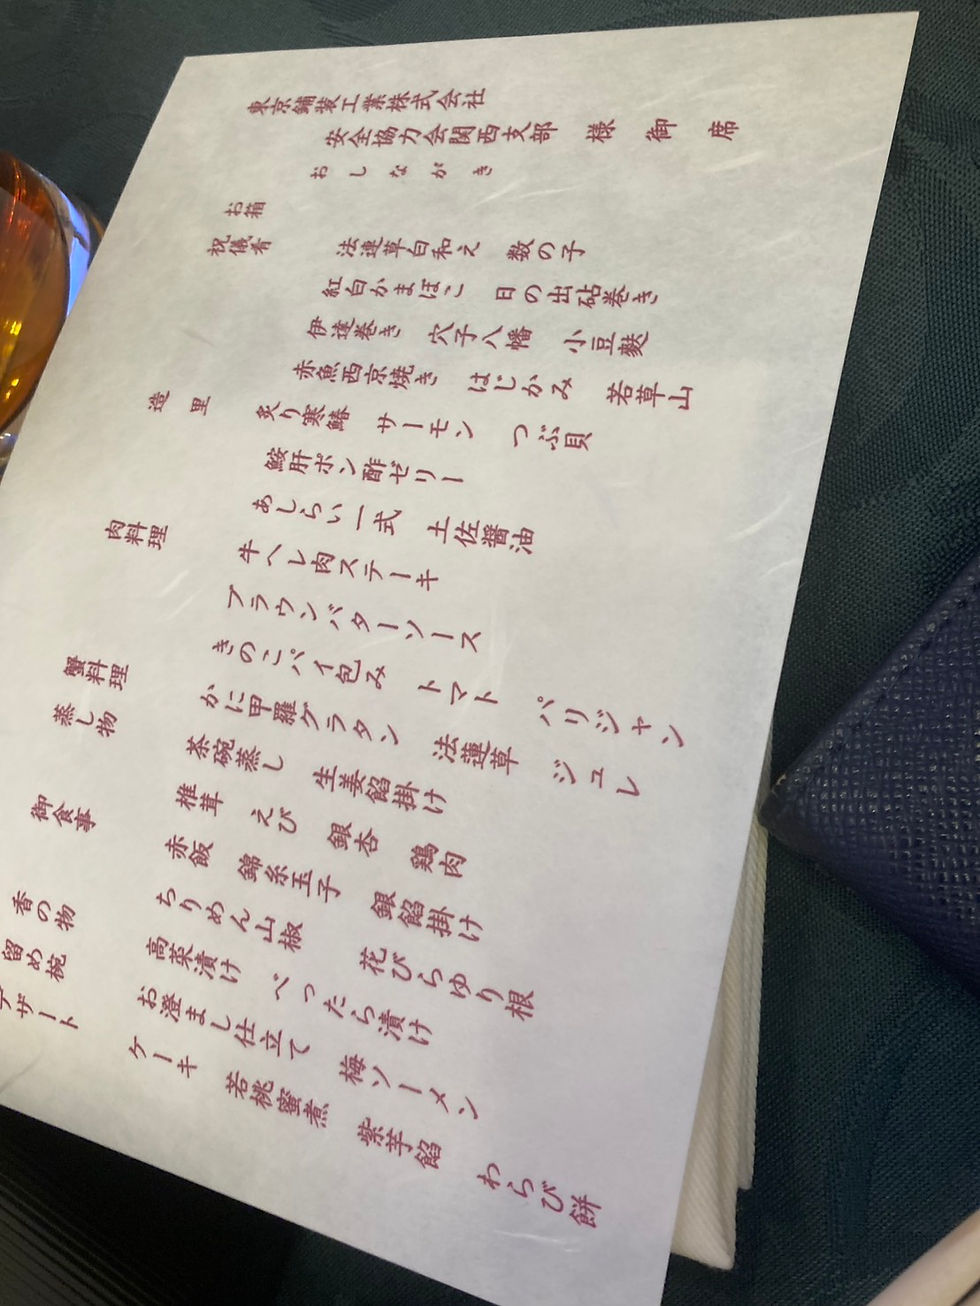 東京鋪装工業株式会社
安全協力会関西支部 様 御 席
おしながき
お箱
祝儀肴 法連草白和え 数の子
紅白かまぼこ 日の出砧巻き
伊達巻き 穴子八幡 小豆麩
赤魚西京焼き はじかみ 若草山
造里 炙り寒鰆 サーモン つぶ貝
鮟肝ポン酢ゼリー
あしらい一式 土佐醤油
肉料理 牛ヘレ肉ステーキ
ブラウンバターソース
きのこパイ包み トマト パリジャン
蟹料理 かに甲羅グラタン 法蓮草 ジュレ
蒸し物 茶碗蒸し 生姜餡掛け
椎茸 えび 銀杏 鶏肉
御食事 赤飯 錦糸玉子 銀餡掛け
ちりめん山椒 花びらゆり根
香の物 高菜漬け べったら漬け
留め椀 お澄まし仕立て 梅ソーメン
デザート ケーキ 若桃蜜煮 紫芋餡 わらび餅